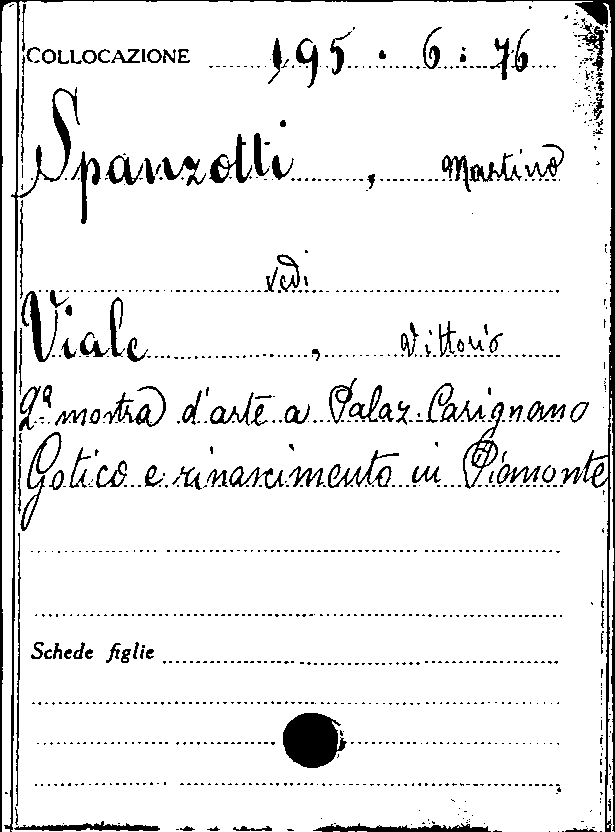 COLLOCAZIONE 195 . 6 : 76
Spanzotti , Martino
vedi
Viale , Vittorio
2ª mostra d'arte a Palaz. Carignano
Gotico e rinascimento in Piemonte
Schede figlie